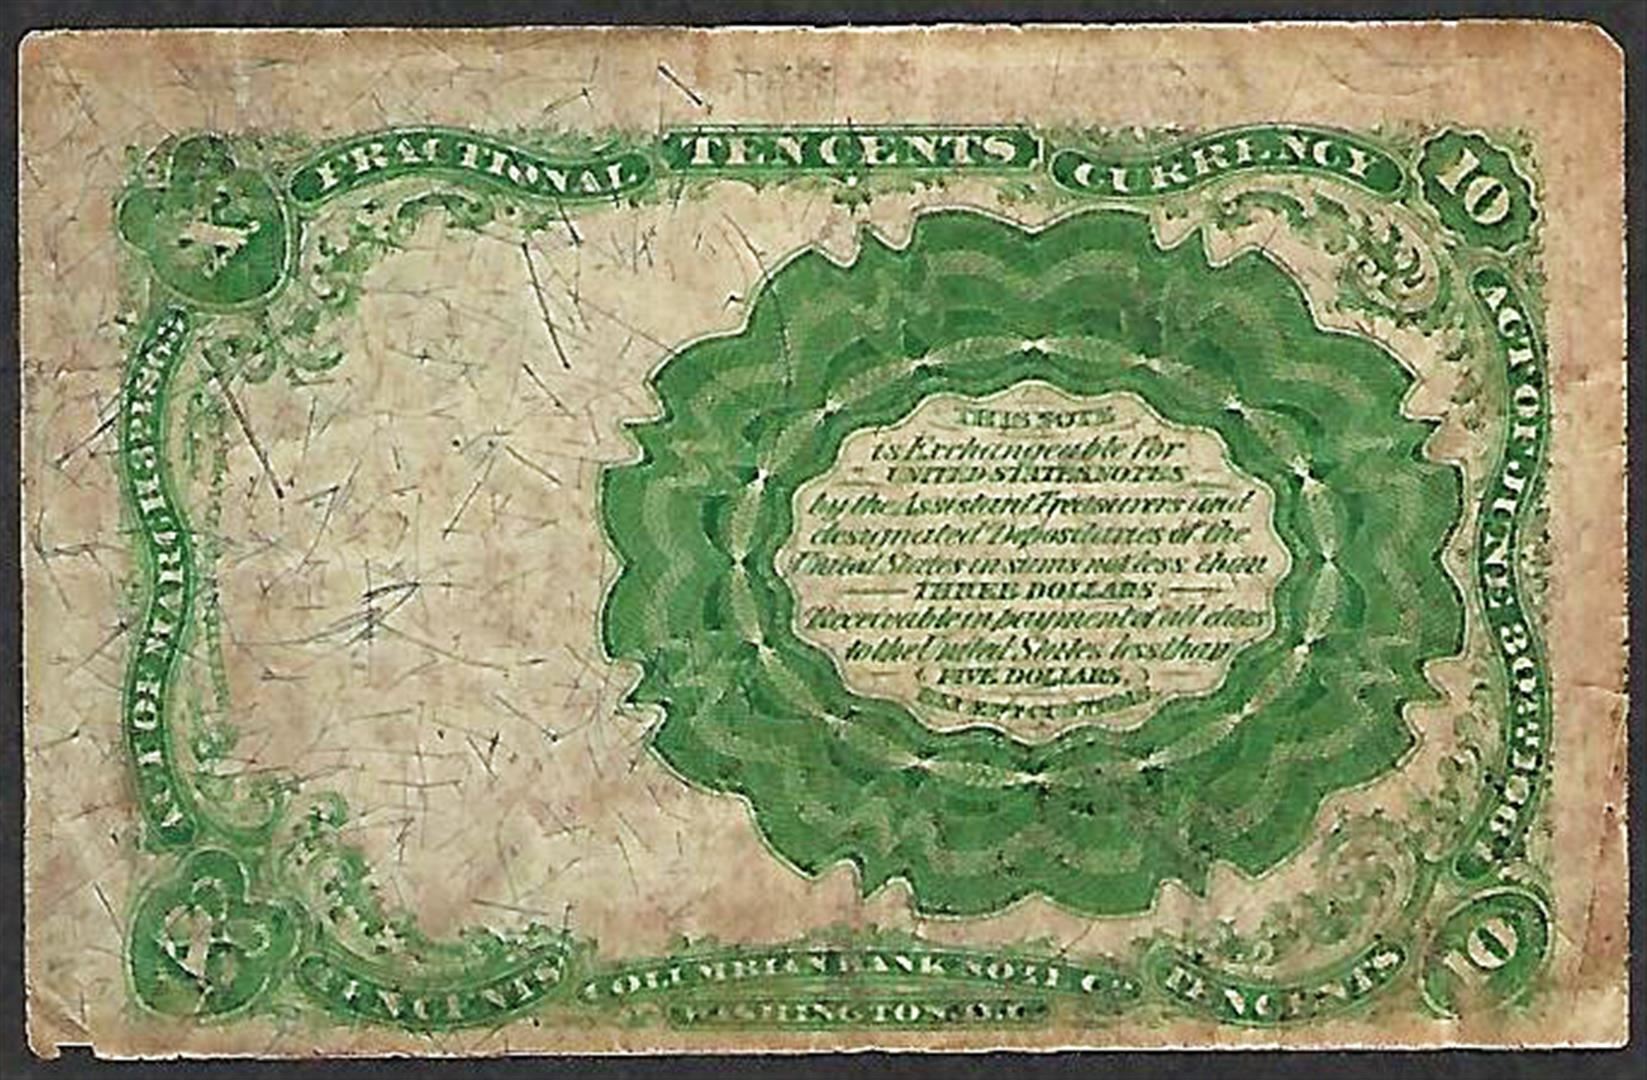 FRACTIONAL TEN CENTS CURRENCY
X
10
ACT OF MARCH 3D 1863
ACT OF JUNE 30TH 1864
THIS NOTE
is Exchangeable for
UNITED STATES NOTES
by the Assistant Treasurers and
designated Depositaries of the
United States in sums not less than
THREE DOLLARS
Receivable in payment of all dues
to the United States less than
FIVE DOLLARS.
EXCEPT CUSTOMS
X
10
TEN CENTS
COLUMBIAN BANK NOTE CO.
TEN CENTS
WASHINGTON, D.C.